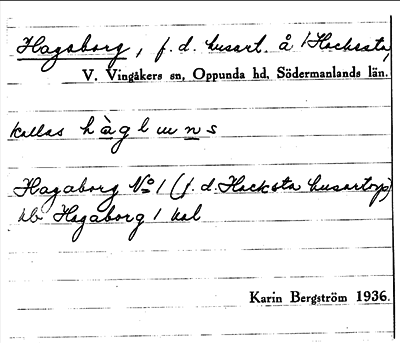 Hagaborg, f. d. husart. å 1 Hacksta,
V. Vingåkers sn, Oppunda hd, Södermanlands län.
kallas
Hagaborg No 1 (f. d. Hacksta husartorp)
Hagaborg 1
Karin Bergström 1936.